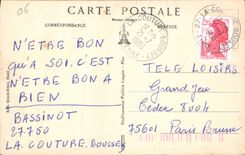 06
CARTE POSTALE
CORRESPONDANCE
N'ETRE BON
QU'A SOI. C'EST
N'ETRE BON A
BIEN
BASSINOT
27750
LA. COUTURE. BOUSSEY
TELE LOISIRS
Grand Jeu
Cedex 8004
75601 Paris Brune